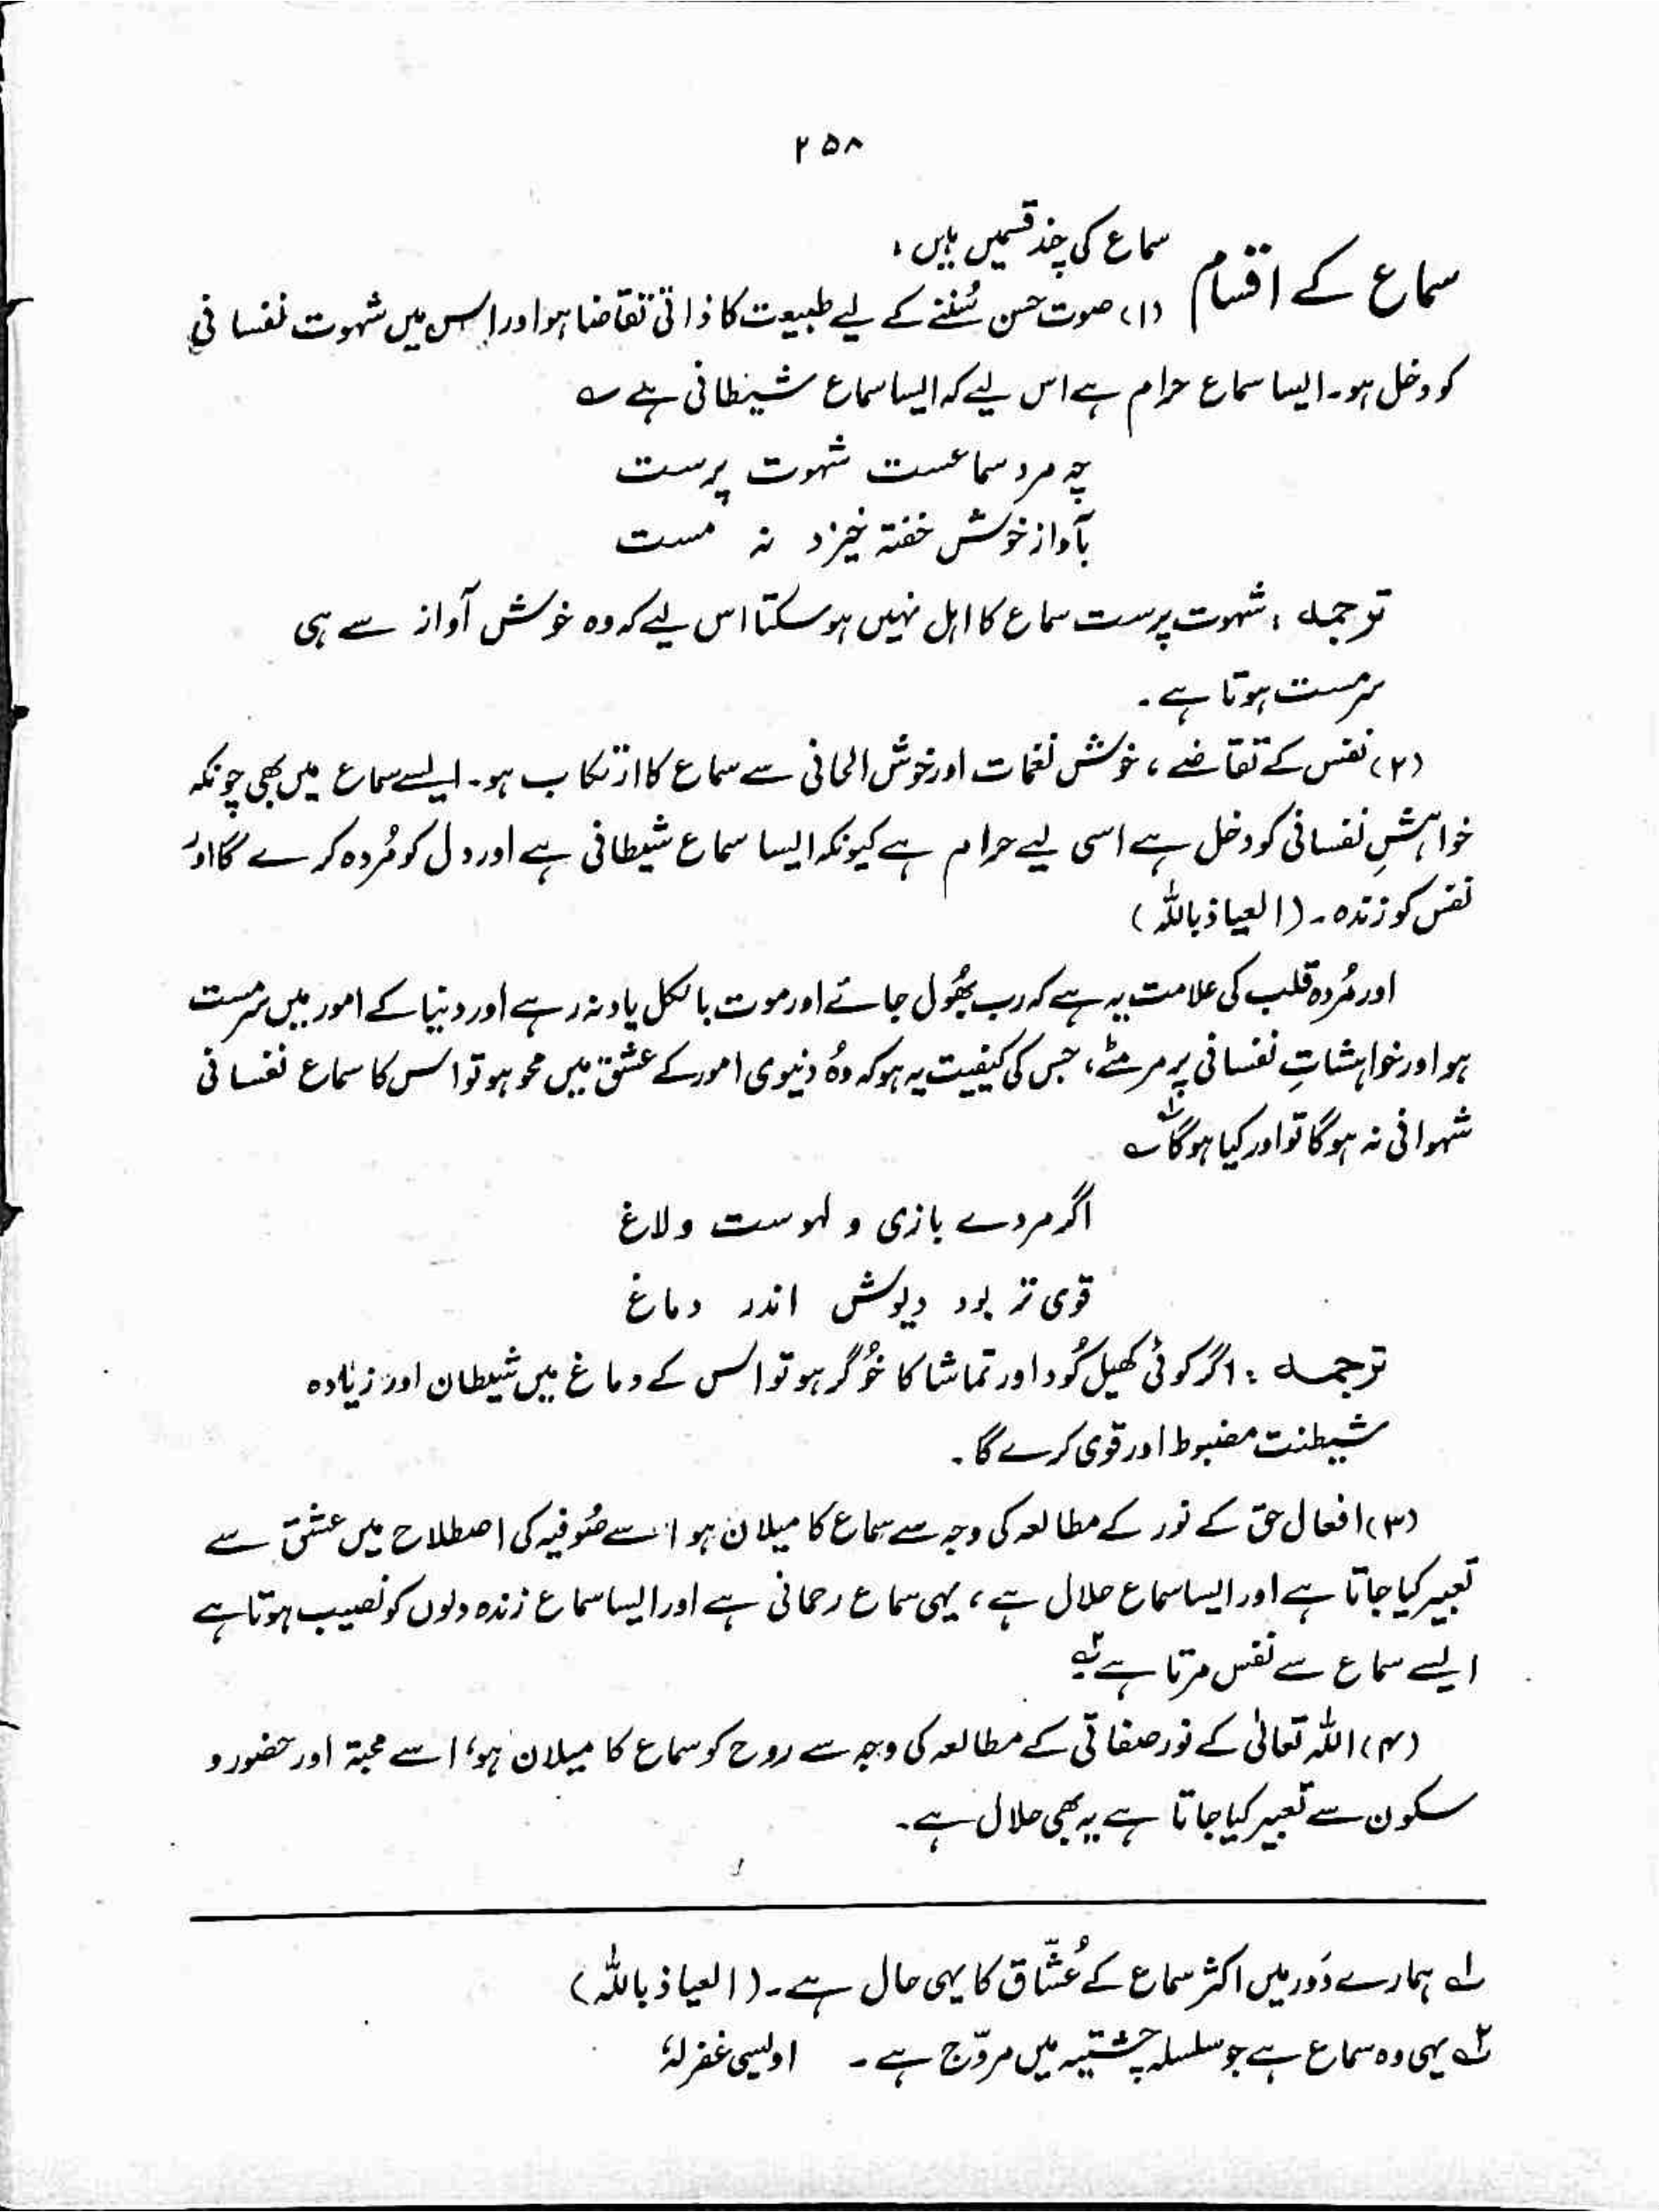 ۲۵۸
سماع کے اقسام سماع کی چند قسمیں ہیں :
(۱) صوت حسن سُننے کے لیے طبیعت کا ذاتی تقاضا ہو اور اس میں شہوت نفسانی
کو دخل ہو۔ ایسا سماع حرام ہے اس لیے کہ ایسا سماع شیطانی ہے ؎
چہ مرد سماعست شہوت پرست
بآواز خوش خفتہ خیزد نہ مست
ترجمہ : شہوت پرست سماع کا اہل نہیں ہو سکتا اس لیے کہ وہ خوش آواز سے ہی
سرمست ہوتا ہے ۔
(۲) نفس کے تقاضے ، خوش نغمات اور خوش الحانی سے سماع کا ارتکاب ہو۔ ایسے سماع میں بھی چونکہ
خواہشِ نفسانی کو دخل ہے اسی لیے حرام ہے کیونکہ ایسا سماع شیطانی ہے اور دل کو مُردہ کرے گا اور
نفس کو زندہ ۔ (العیاذ باللہ)
اور مُردہ قلب کی علامت یہ ہے کہ رب بھُول جائے اور موت بالکل یاد نہ رہے اور دنیا کے امور میں سرمست
ہو اور خواہشاتِ نفسانی پر مر مٹے ، جس کی کیفیت یہ ہو کہ وُہ دنیوی امور کے عشق میں محو ہو تو اس کا سماع نفسانی
شہوانی نہ ہو گا تو اور کیا ہوگا۱؎ ؎
اگر مردے بازی و لہوست و لاغ
قوی تر بود دیوش اندر دماغ
ترجمہ : اگر کوئی کھیل کُود اور تماشا کا خُوگر ہو تو اس کے دماغ میں شیطان اور زیادہ
شیطنت مضبوط اور قوی کرے گا ۔
(۳) افعال حق کے نور کے مطالعہ کی وجہ سے سماع کا میلان ہو اسے صُوفیہ کی اصطلاح میں عشق سے
تعبیر کیا جاتا ہے اور ایسا سماع حلال ہے ، یہی سماع رحمانی ہے اور ایسا سماع زندہ دلوں کو نصیب ہوتا ہے
ایسے سماع سے نفس مرتا ہے۲؎
(۴) اللہ تعالیٰ کے نور صفاتی کے مطالعہ کی وجہ سے روح کو سماع کا میلان ہو، اسے محبۃ اور حضور و
سکون سے تعبیر کیا جاتا ہے یہ بھی حلال ہے۔
۱؎ ہمارے دَور میں اکثر سماع کے عُشّاق کا یہی حال ہے۔ (العیاذ باللہ)
۲؎ یہی وہ سماع ہے جو سلسلہ چشتیہ میں مروّج ہے ۔ اویسی غفرلہٗ